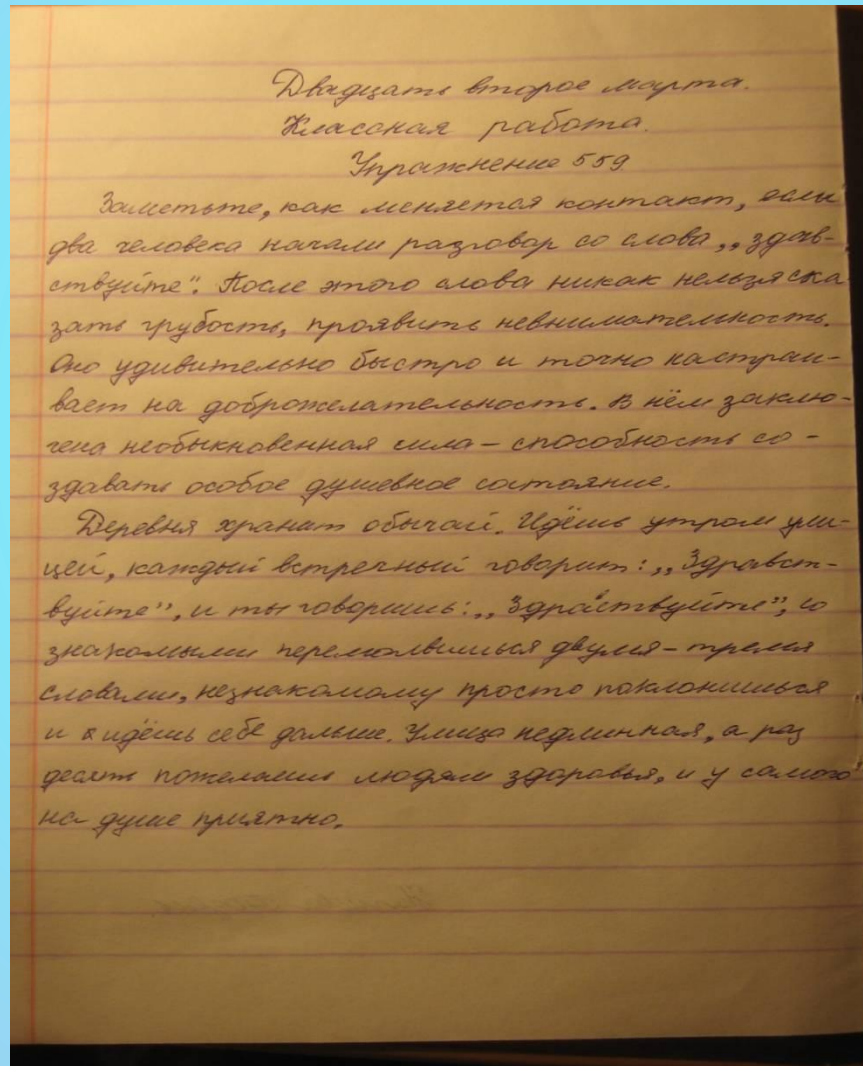 Двадцать второе марта.
Классная работа.
Упражнение 559
Заметьте, как меняется контакт, если
два человека начали разговор со слова „здав-
ствуйте“. После этого слова никак нельзя ска-
зать грубость, проявить невнимательность.
Оно удивительно быстро и точно настраи-
вает на доброжелательность. В нём заклю-
чена необыкновенная сила – способность со-
здавать особое душевное состояние.
Деревня хранит обычай. Идёшь утром ули-
цей, каждый встречный говорит: „Здравст-
вуйте”, и ты говоришь: „Здравствуйте”, со
знакомыми перемолвишься двумя-тремя
словами, незнакомому просто поклонишься
и идёшь себе дальше. Улица недлинная, а раз
десять пожелаешь людям здоровья, и у самого
на душе приятно.